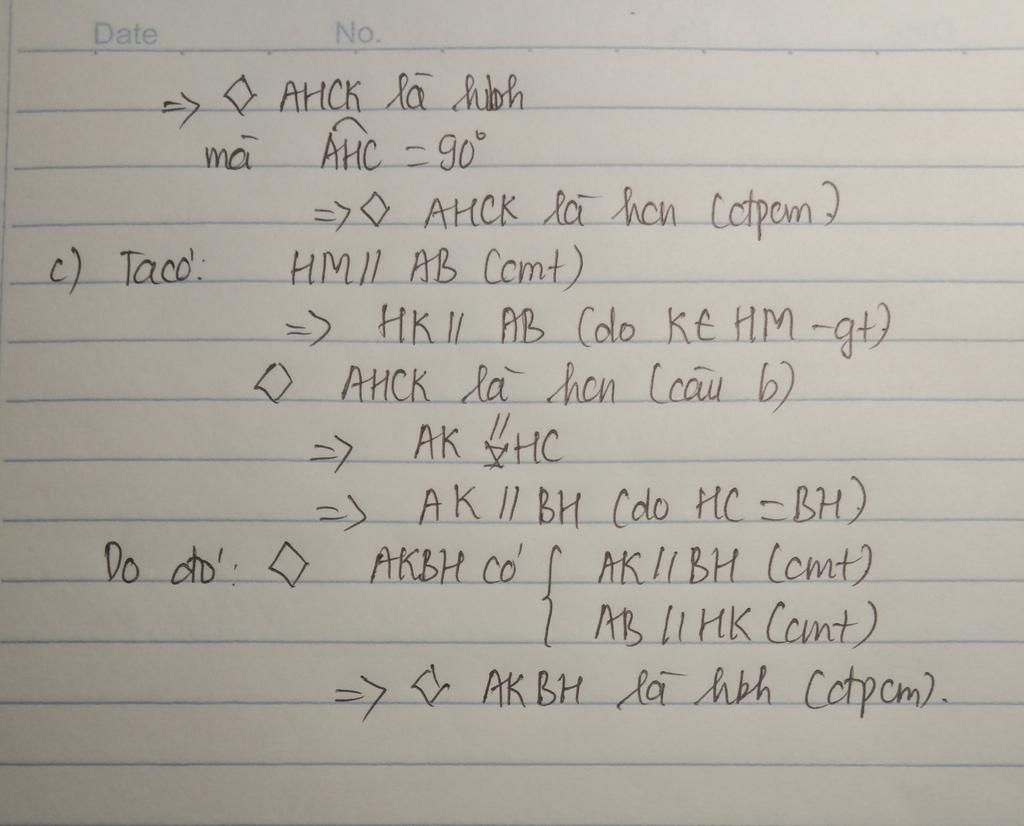 Date No.
=> ◇ AHCK là hbh
mà AHC = 90°
=> ◇ AHCK là hcn (đpcm)
c) Ta có: HM // AB (cmt)
=> HK // AB (do K∈ HM - gt)
◇ AHCK là hcn (câu b)
=> AK // HC
=> AK // BH (do HC = BH)
Do đó: ◇ AKBH có { AK // BH (cmt)
AB // HK (cmt)
=> ◇ AKBH là hbh (đpcm).